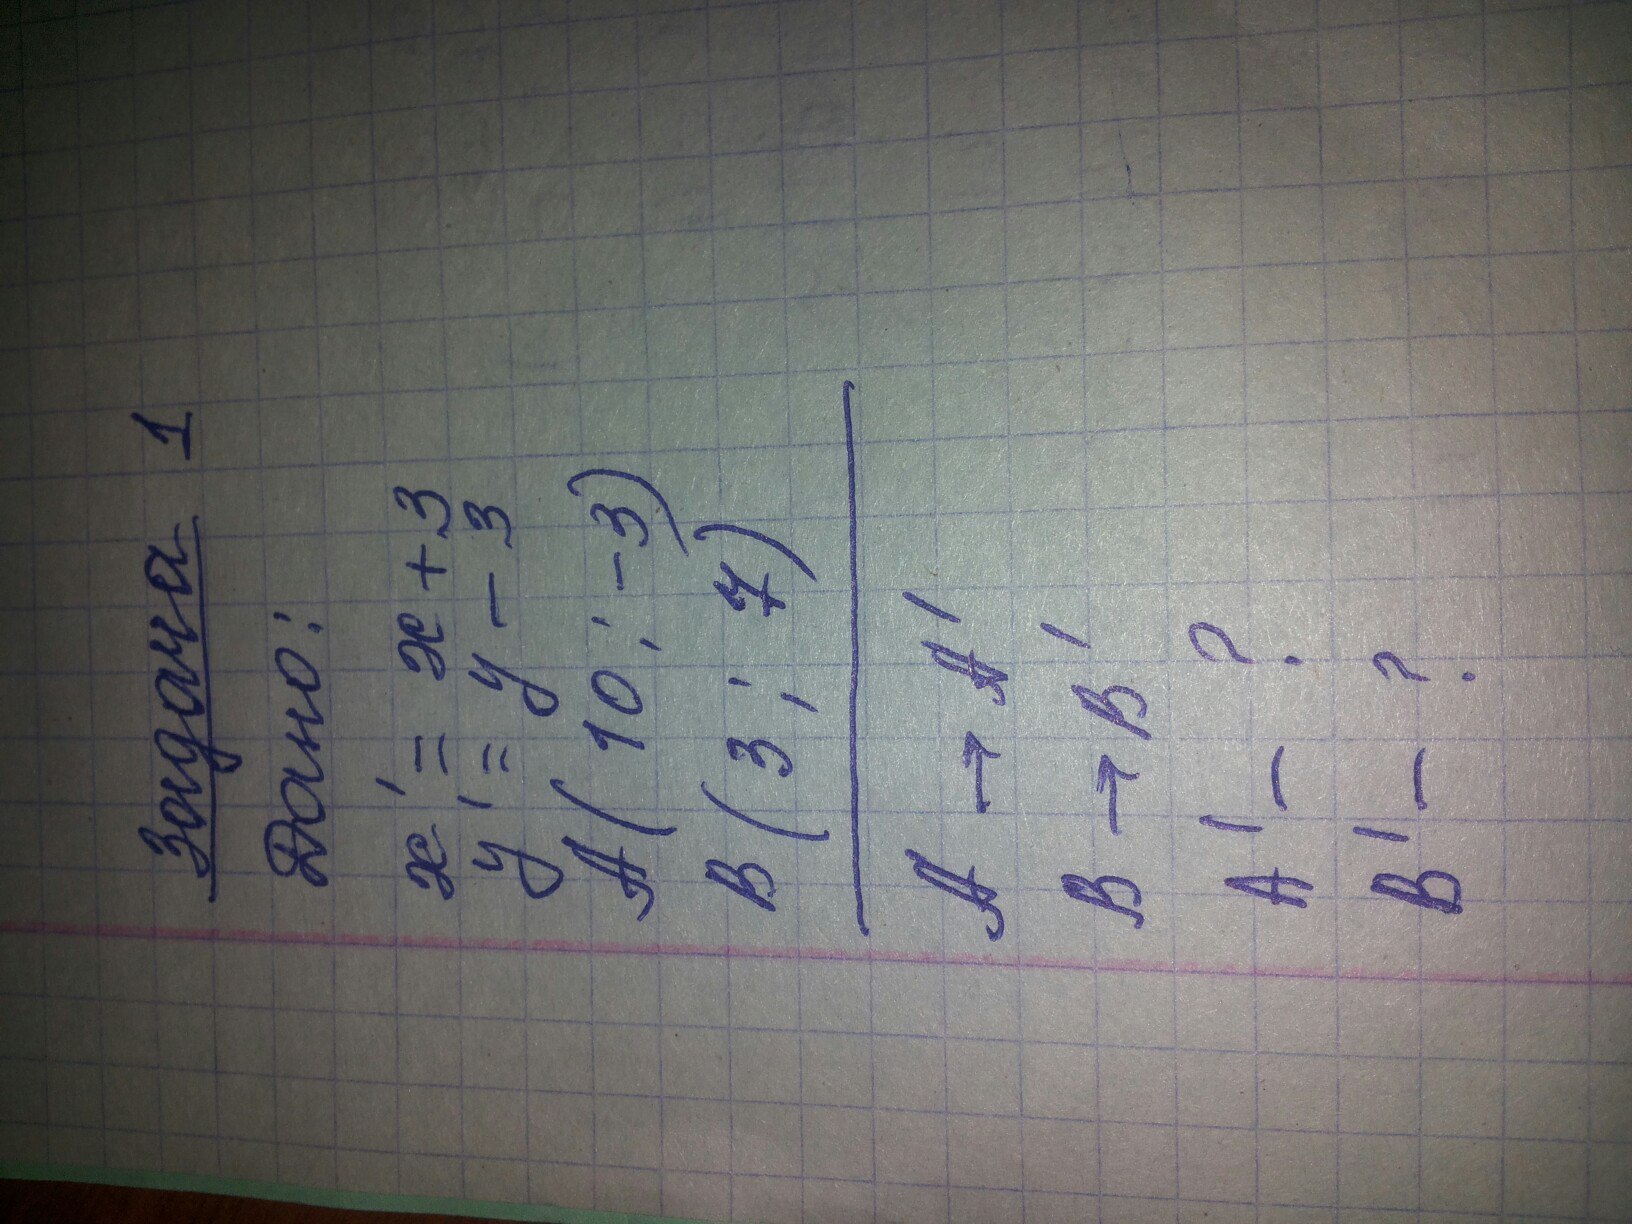 Задача 1
Дано:
x' = x + 3
y' = y - 3
A(10; -3)
B(3; 7)
A → A'
B → B'
A' - ?
B' - ?